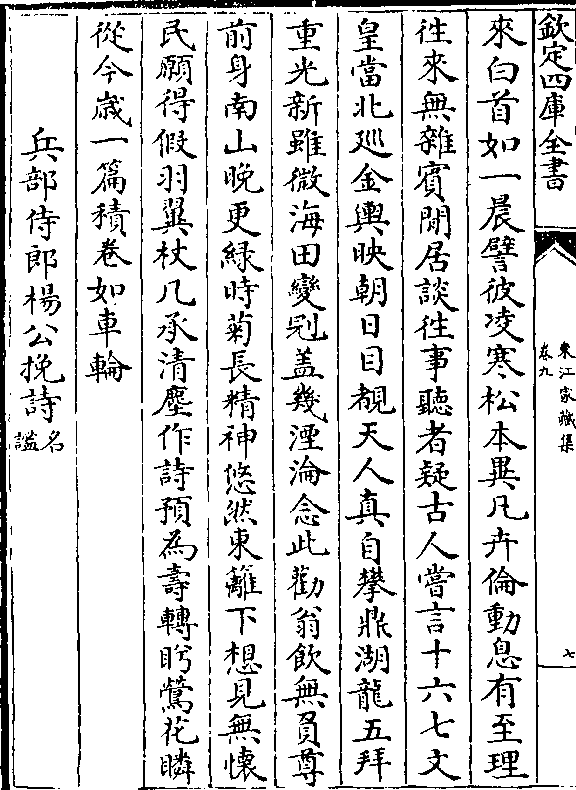 欽定四庫全書
東江家藏集
卷九
七
來白首如一晨譬彼凌寒松本異凡卉倫動息有至理
徃來無雜賓閒居談徃事聽者疑古人嘗言十六七文
皇當北廵金輿映朝日目覩天人真自攀鼎湖龍五拜
重光新雖微海田變剋盖幾湮淪念此勸翁飲無負尊
前身南山晚更緑時菊長精神悠然東籬下想見無懷
民願得假羽翼杖几承清塵作詩預為壽轉眄鶯花瞵
從今歳一篇積卷如車輪
兵部侍郎楊公挽詩名諡